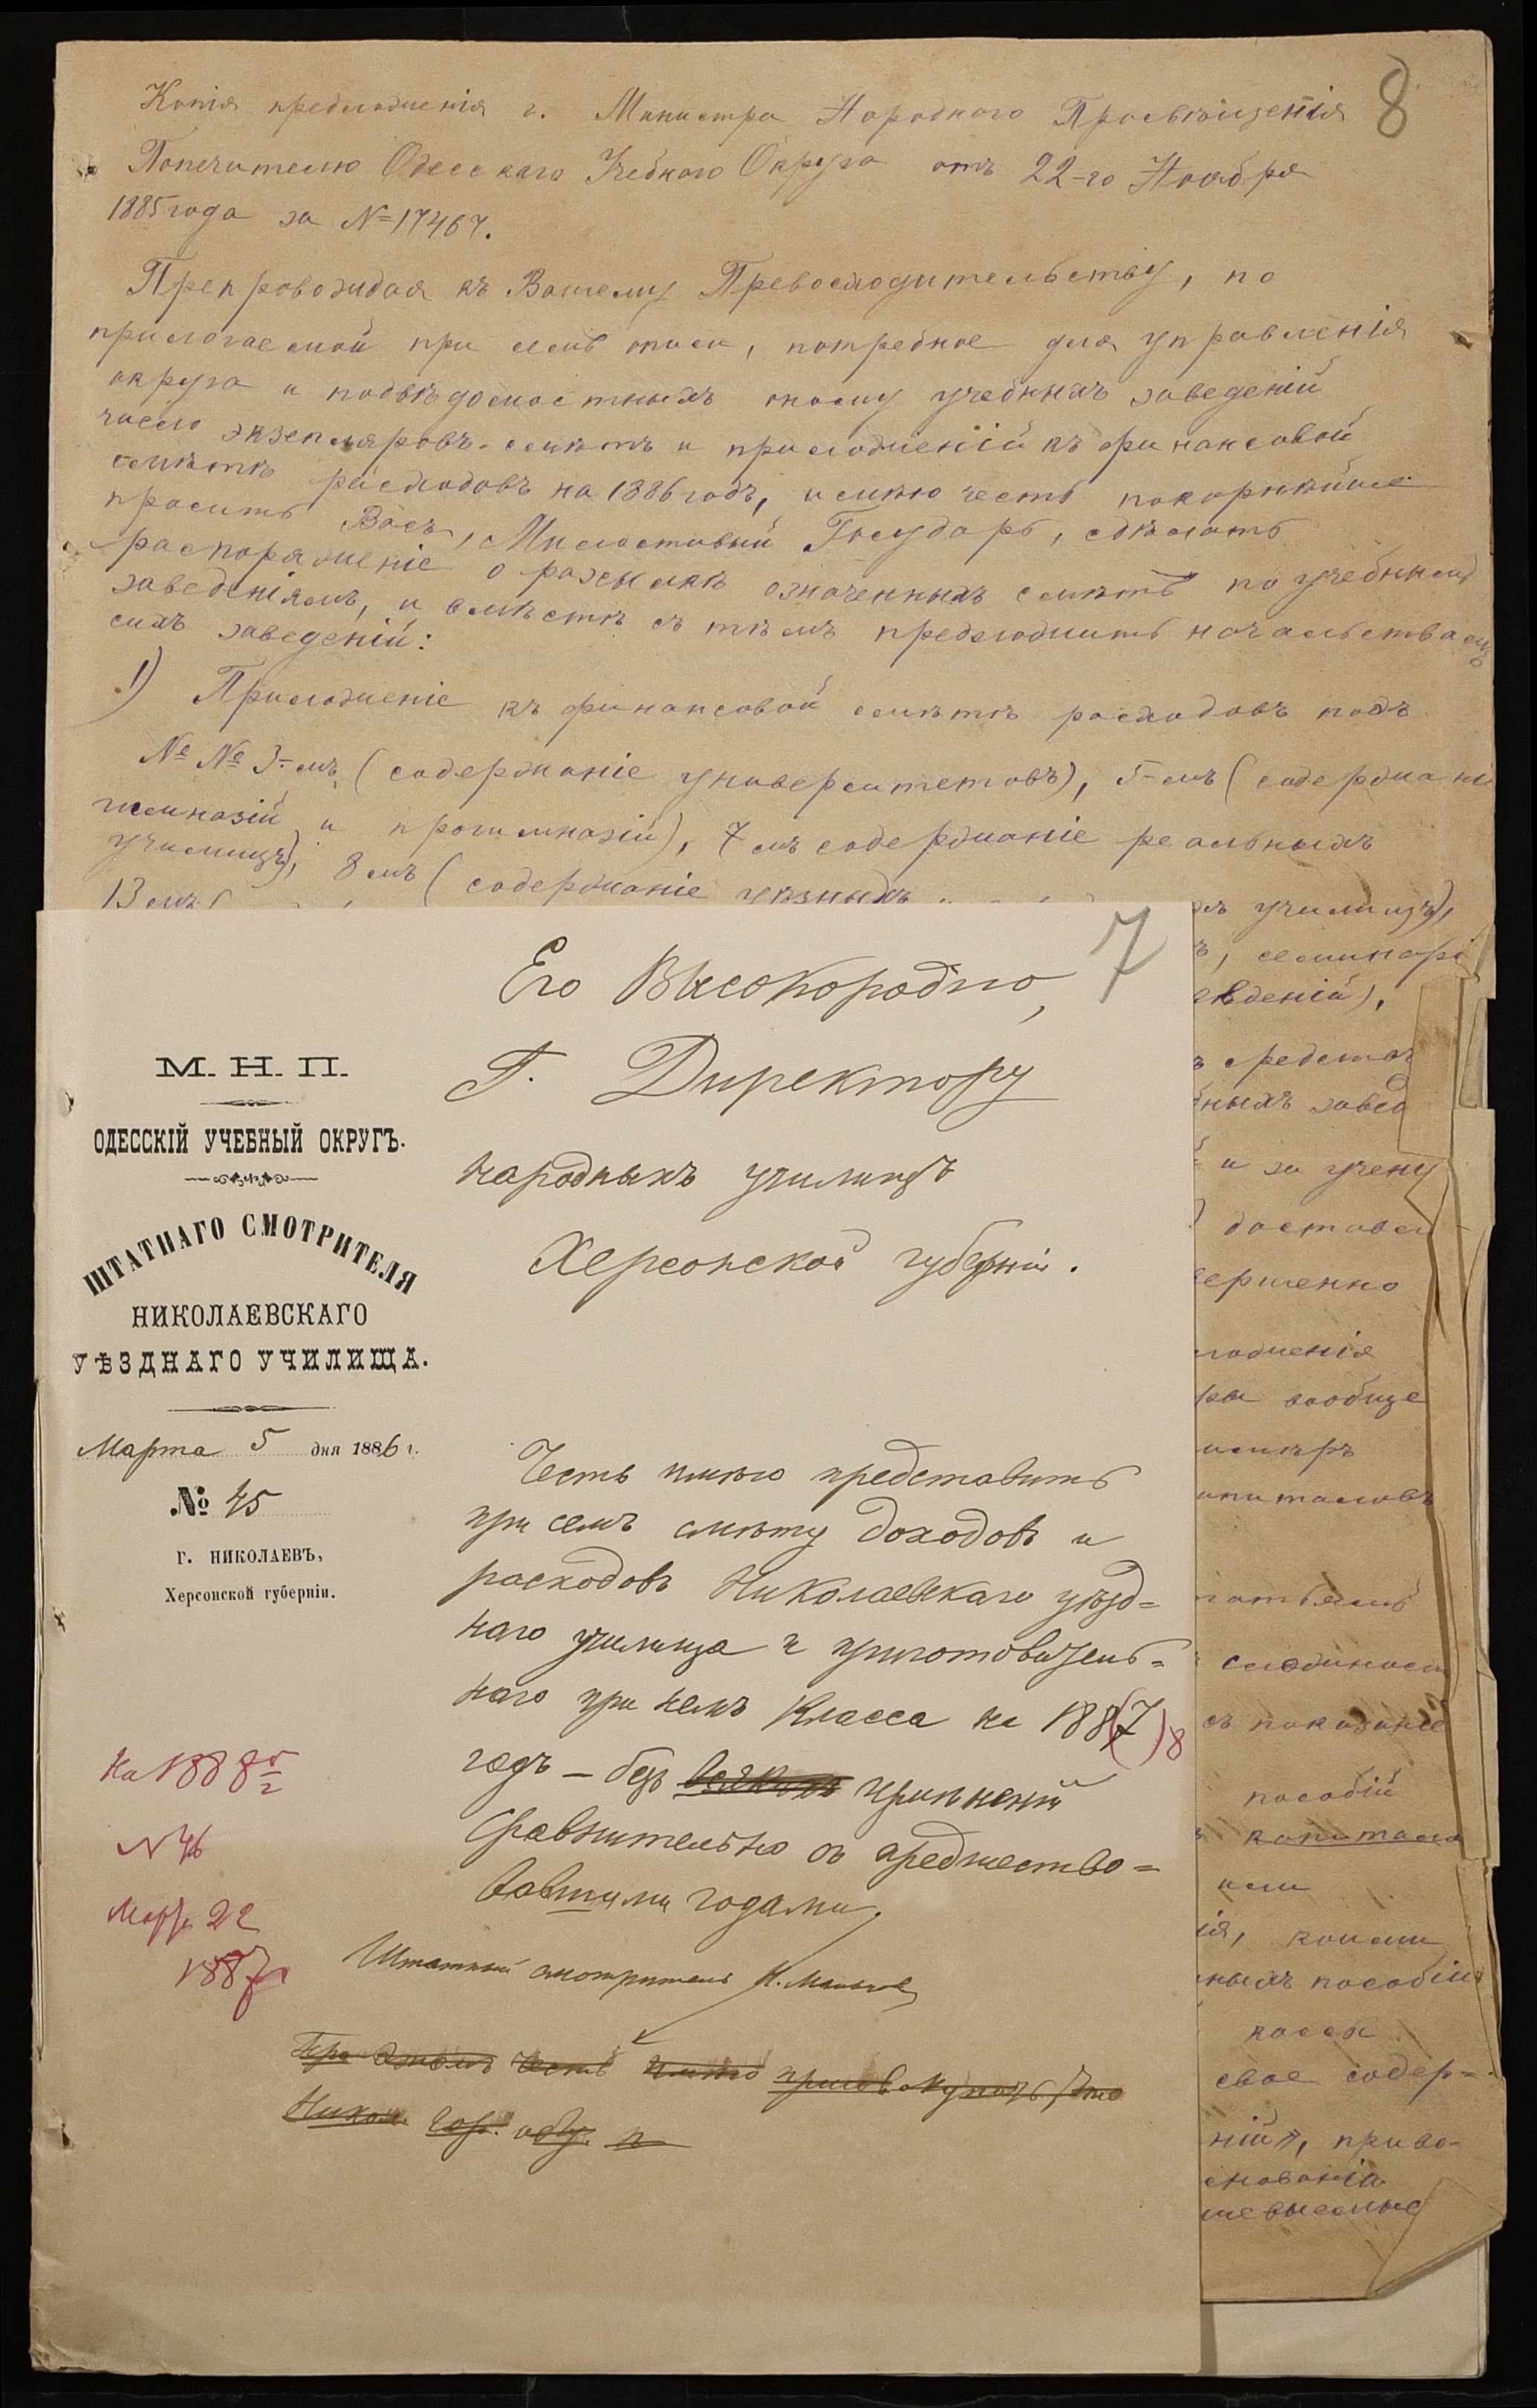 8
Копія предложенія г. Министра Народнаго Просвѣщенія
Попечителю Одесскаго Учебнаго Округа отъ 22-го Ноября
1885 года за №=17467.
Препровождая къ Вашему Превосходительству, по
прилагаемой при семъ описи, потребное для управленія
округа и подвѣдомостныхъ оному учебныхъ заведеній
число экземпляровъ смѣтъ и приложеній къ финансовой
смѣтѣ расходовъ на 1886 годъ, имѣю честь покорнѣйше
просить Васъ, Милостивый Государь, сдѣлать
распоряженіе о разсылкѣ означенныхъ смѣтъ по учебнымъ
заведеніямъ, и вмѣстѣ съ тѣмъ предложить начальствамъ
сихъ заведеній:
1) Приложеніе къ финансовой смѣтѣ расходовъ подъ
№ № 3-мъ (содержаніе университетовъ), 5-мъ (содержані
гимназій и прогимназій), 7 мъ содержаніе реальныхъ
училищъ), 8 мъ (содержаніе уѣзныхъ
13 мъ
училищъ),
, семинарі
еденій),
средства
ныхъ завед
и за учену
достовл
ершенно
ложенія
ры вообще
имѣръ
апиталовъ
сложност
съ показаніе
пособій
капитала
или
ія, копіи
ныхъ пособій
кассы
свое содер=
ній, приво-
снованія
7
Его Высокородію,
Г. Директору
народныхъ училищъ
Херсонской губерніи.
М. Н. П.
ОДЕССКІЙ УЧЕБНЫЙ ОКРУГЪ.
ШТАТНАГО СМОТРИТЕЛЯ
НИКОЛАЕВСКАГО
УѢЗДНАГО УЧИЛИЩА.
Марта 5 дня 1886 г.
№ 45
г. НИКОЛАЕВЪ,
Херсонской губерніи.
Честь имѣю представить
при семъ смѣту доходовъ и
расходовъ Николаевскаго уѣзд=
наго училища и приготовитель=
наго при немъ класса на 188(7)8
годъ – безъ всякихъ измѣненій
сравнительно съ предшество=
вавшими годами.
Штатный смотритель
На 1888 г
N 46
Марта 22
1887
При этомъ честь имѣю присовокупить, что
Никол. гор. общ. п